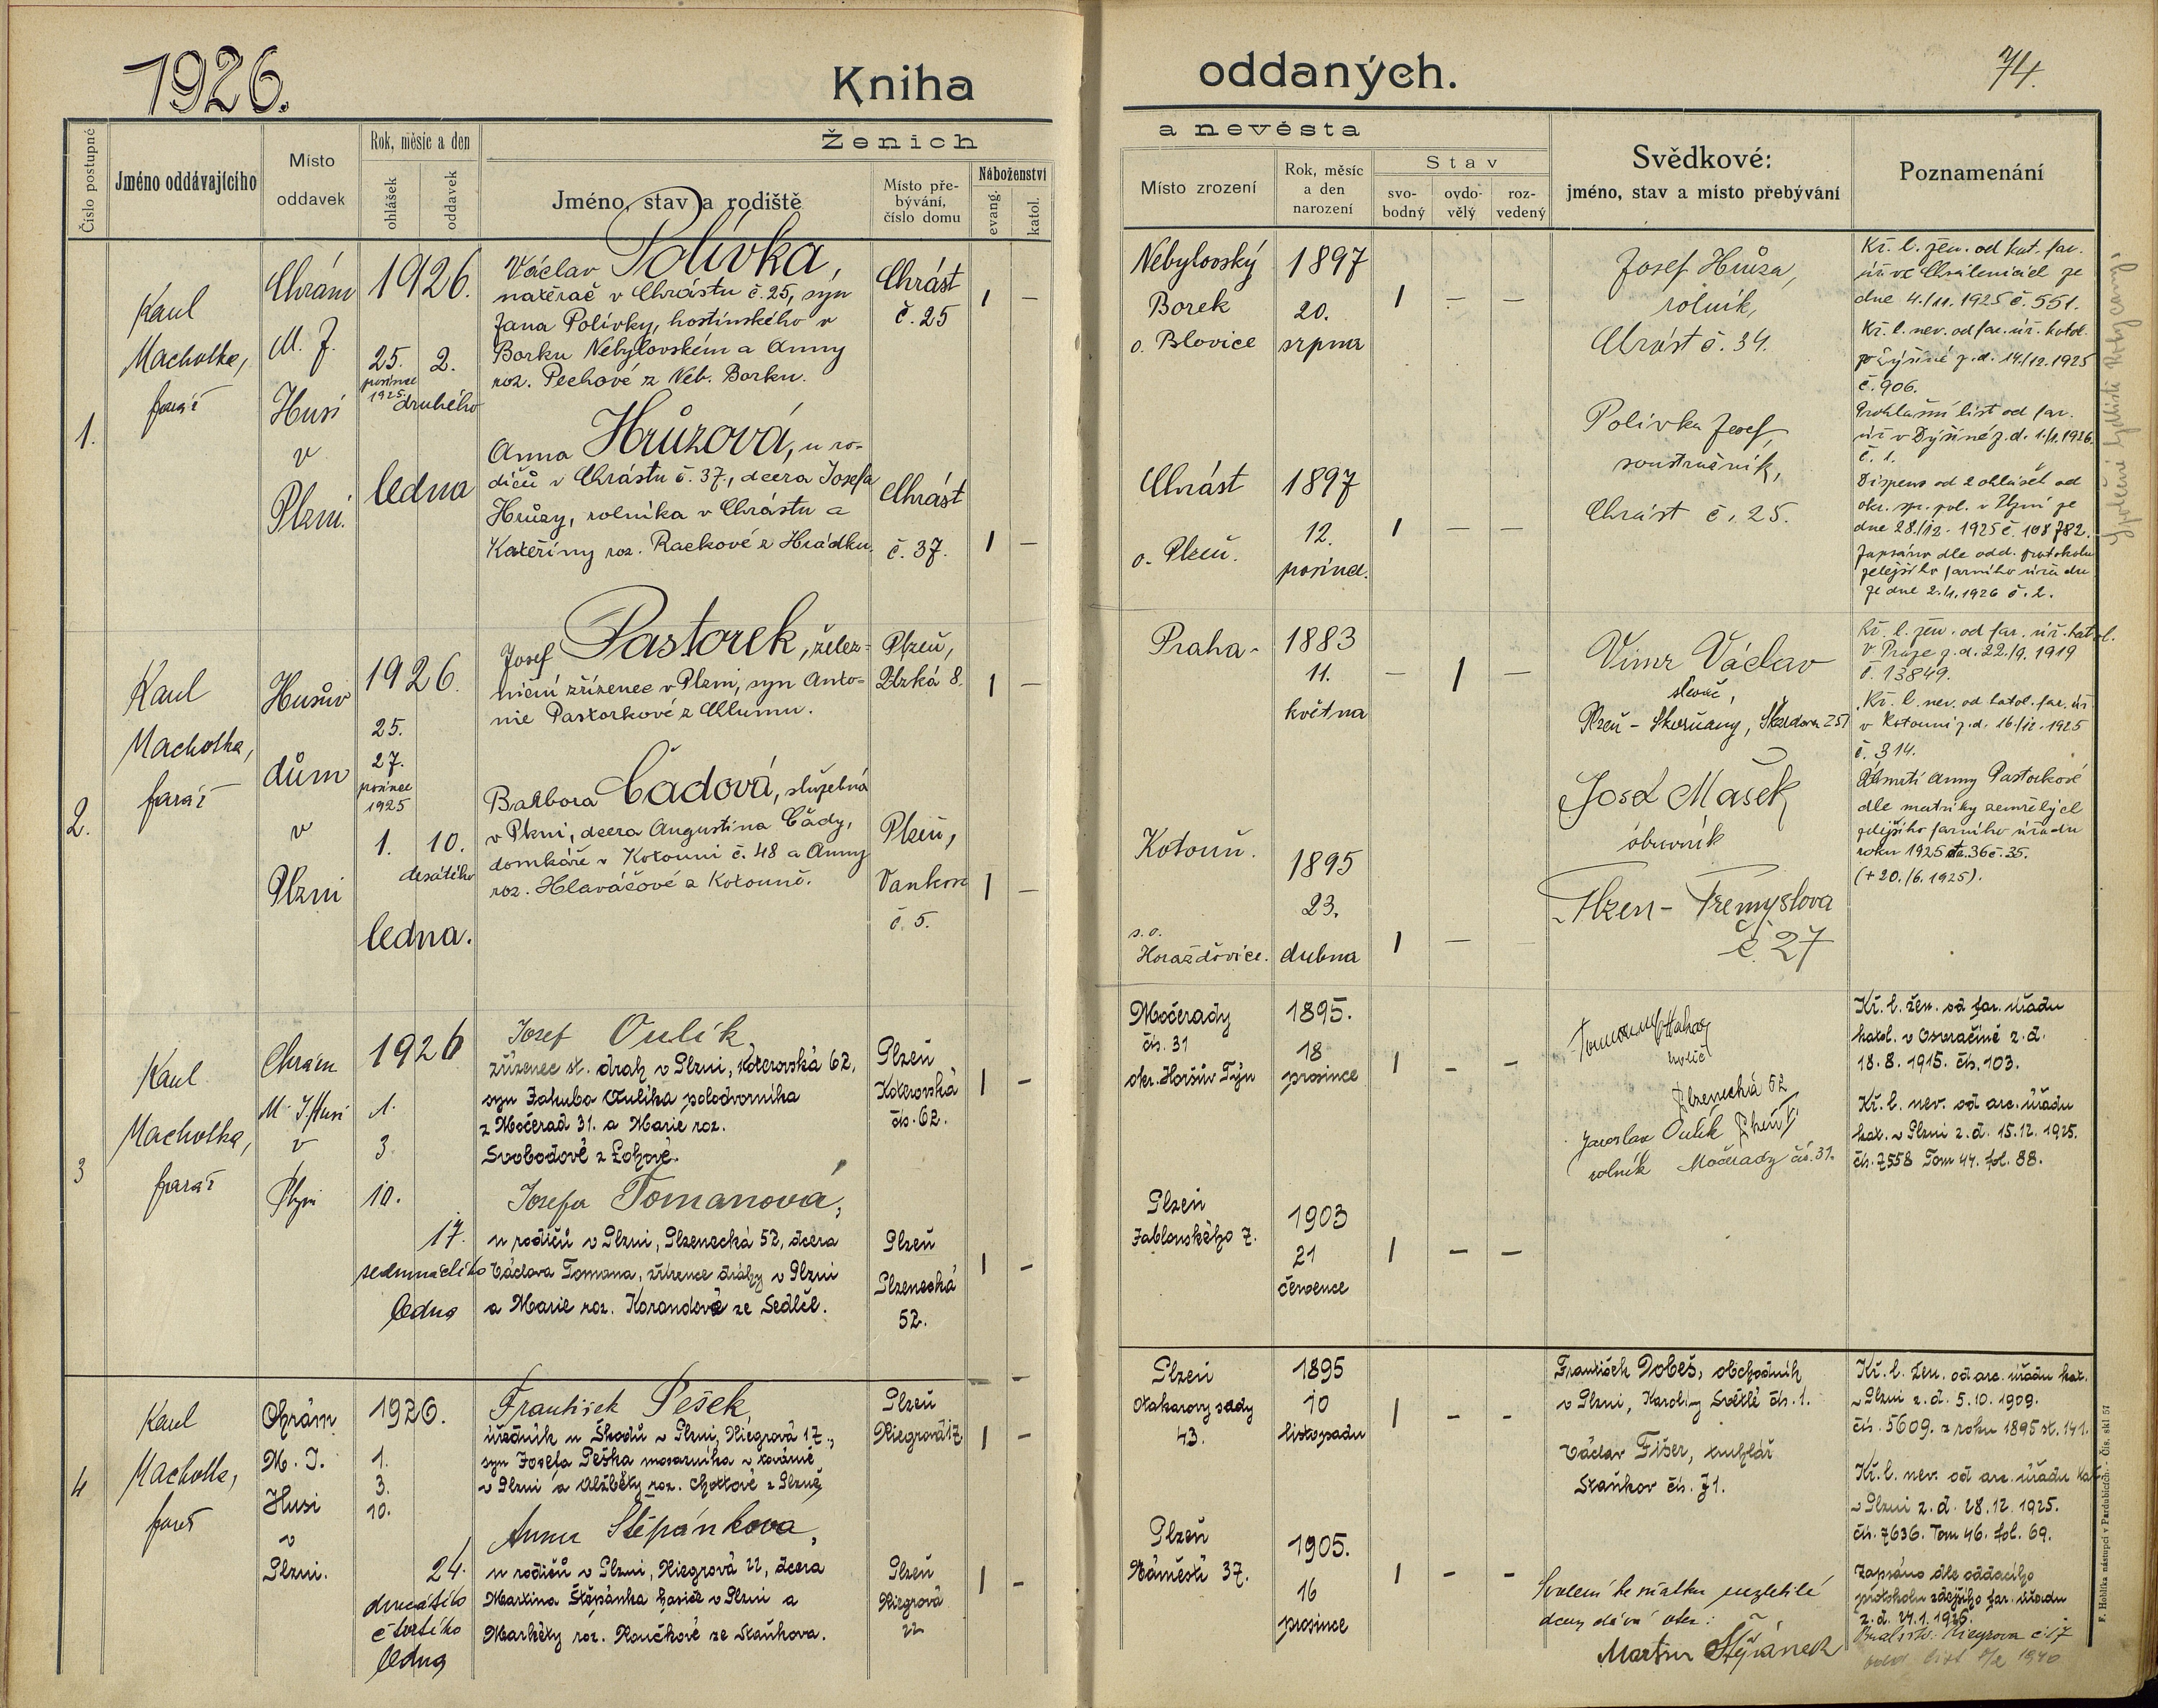 1926.
Kniha
oddaných.
74.
Číslo postupné
Jméno oddávajícího
Místo
oddavek
Rok, měsíc a den
ohlášek
oddavek
Ženich
Jméno, stav a rodiště
Místo pře-
bývání,
číslo domu
Náboženství
evang.
katol.
a nevěsta
Místo zrození
Rok, měsíc
a den
narození
Stav
svo-
bodný
ovdo-
vělý
roz-
vedený
Svědkové:
jméno, stav a místo přebývání
Poznamenání
1.
Karel
Machotka,
farář
Chrám
M. J.
Husi
v
Plzni.
1926.
25.
prosince
1925
2.
druhého
ledna
Václav Polívka,
natěrač v Chrástu č. 25, syn
Jana Polívky, hostinského v
Borku Nebylovském a Anny
roz. Pechové z Neb. Borku.
Chrást
č. 25
1 –
Anna Hrůzová, u ro-
dičů v Chrástu č. 37., dcera Josefa
Hrůzy, rolníka v Chrástu a
Kateřiny roz. Rackové z Hrádku.
Chrást
č. 37.
1 –
Nebylovský
Borek
o. Blovice
1897
20.
srpna
1 – –
Chrást
o. Plzeň.
1897
12.
prosince.
1 – –
Josef Hrůza,
rolník,
Chrást č. 34.
Polívka Josef
soustružník,
Chrást č. 25.
Kř. l. žen. od kat. far.
úř. ve Chválenicích ze
dne 4./11. 1925 č. 551.
Kř. l. nev. od far. úř. katol.
v Dýšiné z. d. 14./12. 1925
č. 906.
Prohlašní list od far.
úř. v Dýšině z. d. 1./1. 1926.
č. 1.
Dispens od 2 ohlášek od
okr. spr. pol. v Plzni ze
dne 28./12. 1925 č. 108782.
Zapsáno dle odd. protokolu
zdejšího farního úřadu
ze dne 2./1. 1926 č. 2.
2.
Karel
Machotka,
farář
Husův
dům
v
Plzni
1926.
25.
27.
prosince
1925
1. 10.
desátého
ledna.
Josef Pastorek, želez-
niční zřízenec v Plzni, syn Anto-
nie Pastorkové z Chlumu.
Plzeň,
Plzká 8.
1 –
Barbora Čadová, služebná
v Plzni, dcera Augustina Čády,
domkáře v Kotouni č. 48 a Anny
roz. Hlaváčové z Kotouně.
Plzeň,
č. 5.
1 –
Praha-
1883
11.
května
– 1 –
Kotouň.
s. o.
Horažďovice.
1895
23.
dubna
1 –
Vimr Václav
slevač,
Plzeň - Skvrňany,
Josef Mašek
obuvník
Plzeň - Přemyslova
č. 27
Kř. l. žen. od far. úř. katol.
v Praze z. d. 22./9. 1919
č. 13849.
Kř. l. nev. od katol. far. úř.
v Kotouni z. d. 16./12. 1925
č. 314.
Úmrtí Anny Pastorkové
dle matriky zemřelých
zdejšího farního úřadu
roku 1925 str. 36 č. 35.
(+ 20./6. 1925).
3
Karel
Machotka,
farář
Chrám
M. J. Husi
v
Plzni
1926
1.
3.
10.
17.
sedmnáctého
ledna
Josef Oulík
zřízenec st. drah v Plzni, Koterovská 62,
syn Jakuba Oulíka polodvorníka
z Močerad 31. a Marie roz.
Svobodové z Lohové.
Plzeň
Koterovská
čís. 62.
1 –
Josefa Tomanová,
u rodičů v Plzni, Plzenecká 52, dcera
Václava Tomana, zřízence dráhy v Plzni
a Marie roz. Korandové ze Sedlčl.
Plzeň
Plzenecká
52.
1 –
Močerady
čís. 31
okr. Horšův Týn
1895.
18
prosince
1 – –
Plzeň
Jablonského 7.
1903
21
července
1 – –
holič
Plzenecká 52
Plzeň
Jaroslav Oulík
rolník Močerady čís. 31.
Kř. l. žen. od far. úřadu
katol. v Osvračíně z. d.
18. 8. 1915. čís. 103.
Kř. l. nev. od arc. úřadu
kat. v Plzni z. d. 15. 12. 1925.
čís. 7558 Tom 44. fol. 88.
4
Karel
Machotka,
farář
Chrám
M. J.
Husi
v
Plzni.
1926.
1.
3.
10.
24.
dvacátého
čtvrtého
ledna
František Pešek
úředník u Škodů v Plzni, Riegrová 17.,
syn Josefa Peška mosazníka v továrně
v Plzni a Alžběty roz. Chottové z Plzně,
Plzeň
Riegrová 17
1 –
Anna Štěpánkova,
u rodičů v Plzni, Riegrová 22, dcera
Martina Štěpánka hasiče v Plzni a
Markéty roz. Houčkové ze Staňkova.
Plzeň
Riegrová
22
1 –
Plzeň
Otakarovy sady
43.
1895
10
listopadu
1 – –
Plzeň
Náměstí 37.
1905.
16
prosince
1 – –
František Dobeš, obchodník
v Plzni, Karoliny Světlé čís. 1.
Václav Fišer, truhlář
Staňkov čís. 71.
Svolení ke sňatku nezletilé
dcery dává otec:
Martin Štěpánek
Kř. l. žen. od arc. úřadu kat.
v Plzni z. d. 5. 10. 1909.
čís. 5609. z roku 1895 st. 141.
Kř. l. nev. od arc. úřadu kat.
v Plzni z. d. 28. 12. 1925.
čís. 7636. Tom 46. fol. 69.
Zapsáno dle oddacího
protokolu zdejšího far. úřadu
z. d. 24. 1. 1926.
Riegrova č. 17
1940
F. Hoblíka nástupci v Pardubicích - Čís. skl 57